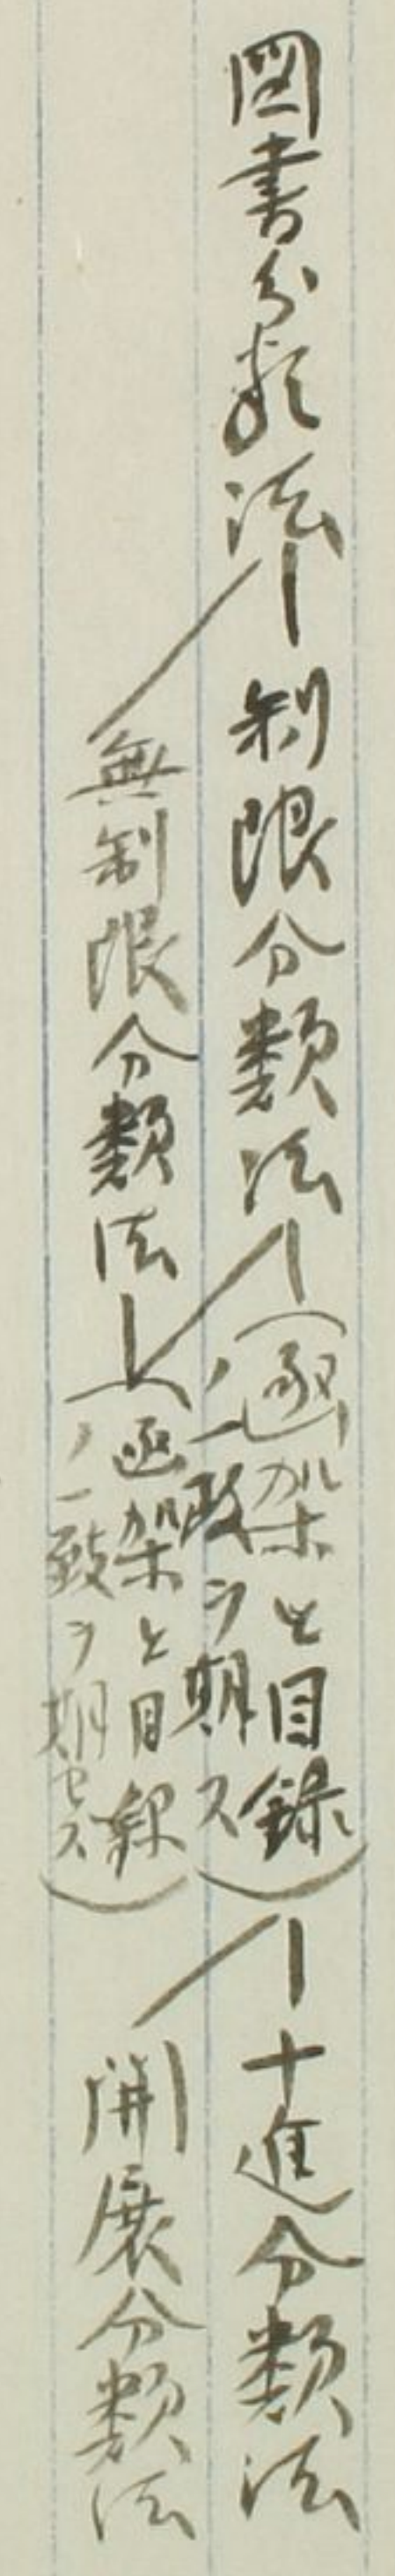 図書分類法
制限分類法
(函架と目録
ノ一致ヲ期ス)
十進分類法
無制限分類法
(函架と目録
ノ一致ヲ期セス)
開展分類法